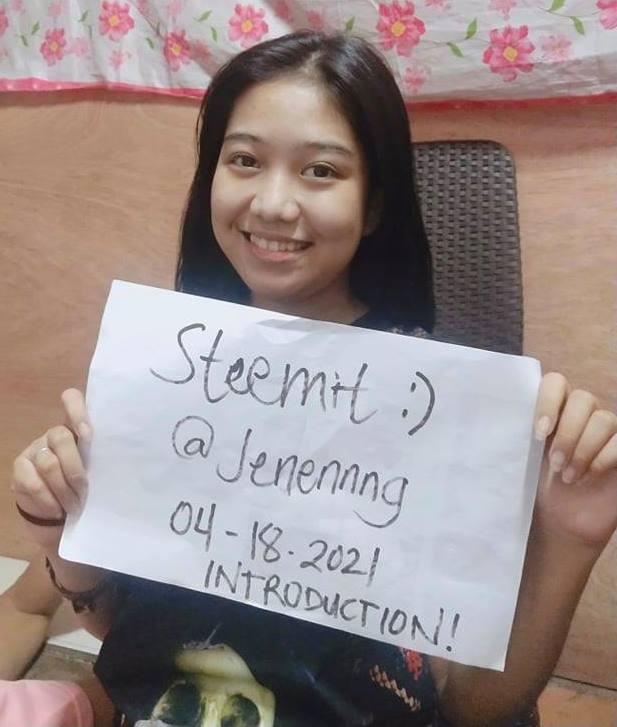 Steemit :)
@Jenennng
04-18.2021
INTRODUCTION!